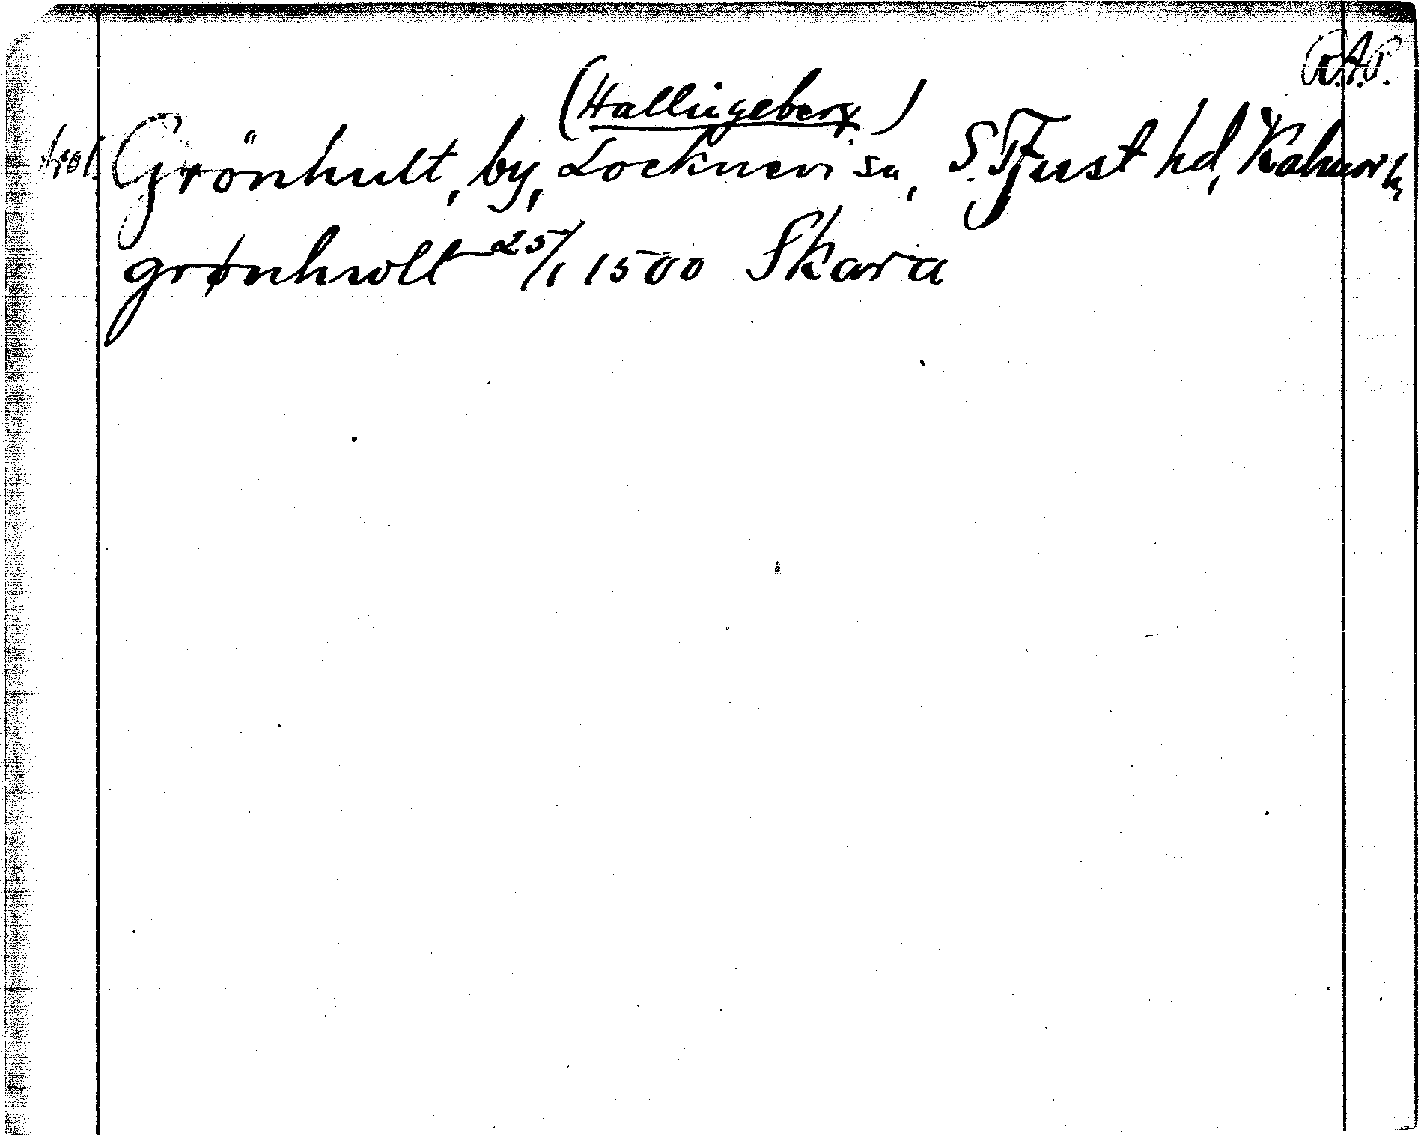 R.A.P.
(Hallingeberg)
trol. Grönhult, by, Locknevi sn, S. Tjust hd, Kalmar l.
grønhwlt 25/1 1500 Skara